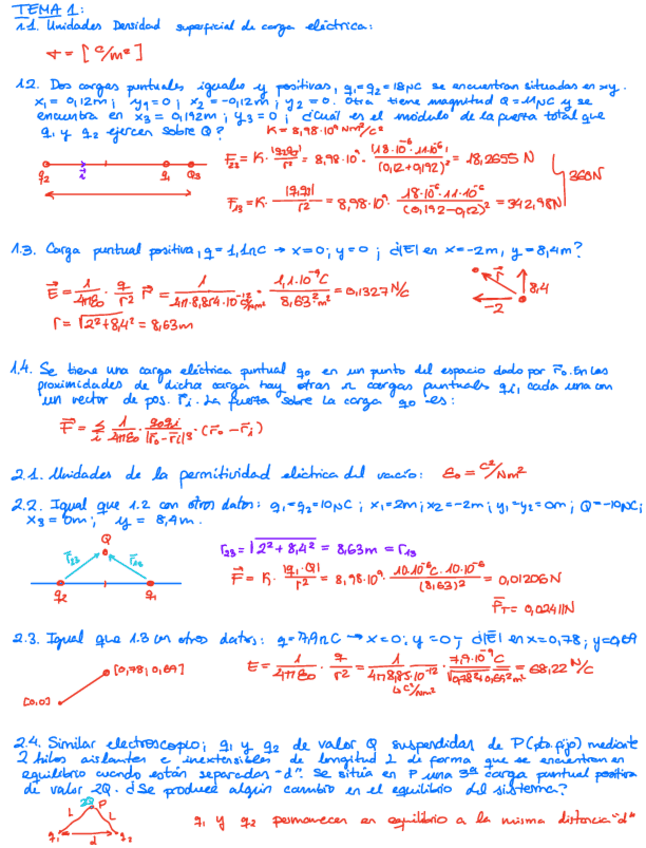 TEMA 1:
1.1. Unidades Densidad superficial de carga eléctrica:
σ = [C/m²]
1.2. Dos cargas puntuales iguales y positivas, q1=q2=18μC se encuentran situadas en xy.
x1 = 0,12m; y1=0; x2=-0,12m; y2=0. Otra tiene magnitud Q=11μC y se
encuentra en x3=0,192m; y3=0; ¿Cuál es el módulo de la fuerza total que
q1 y q2 ejercen sobre Q? K=8,98·10⁹ Nm²/C²
F23 = K· |q2q3|/r² = 8,98·10⁹· (18·10⁻⁶·11·10⁻⁶)/(0,12+0,192)² = 18,2655 N
q2 i q1 Q3
360N
F13 = K· |q1q3|/r² = 8,98·10⁹· 18·10⁻⁶·11·10⁻⁶/(0,192-0,12)² = 342,98N
1.3. Carga puntual positiva, q=1,1nC → x=0; y=0; ¿|E| en x=-2m, y=8,4m?
E = 1/4πε0 · q/r² r = 1/4π·8,854·10⁻¹² C²/Nm² · 1,1·10⁻⁹C/8,63² m² = 0,1327 N/C
r 8,4 -2
r = √2²+8,4² = 8,63m
1.4. Se tiene una carga eléctrica puntual q0 en un punto del espacio dado por r0. En las
proximidades de dicha carga hay otras n cargas puntuales qi, cada una con
un vector de pos. ri. La fuerza sobre la carga q0 es:
F = Σi 1/4πε0 · q0qi/|r0-ri|³ · (r0-ri)
2.1. Unidades de la permitividad eléctrica del vacío: ε0 = C²/Nm²
2.2. Igual que 1.2 con otros datos: q1=q2=10μC; x1=2m; x2=-2m; y1=y2=0m; Q=-10μC;
x3=0m; y=8,4m.
Q
r23 = √2²+8,4² = 8,63m = r13
r23 r13
F = K· |q1·Q|/r² = 8,98·10⁹· 10·10⁻⁶C·10·10⁻⁶/(8,63)² = 0,01206N
q2 q1
FT = 0,02411N
2.3. Igual que 1.3 con otros datos: q=7,9nC → x=0; y=0; ¿|E| en x=0,78; y=0,69
[0,78; 0,69]
E = 1/4πε0 · q/r² = 1/4π8,85·10⁻¹² · 7,9·10⁻⁹C/√0,78²+0,69² m² = 68,22 N/C
↳ C²/Nm²
[0,0]
2.4. Similar electroscopio; q1 y q2 de valor Q suspendidas de P(pto. fijo) mediante
2 hilos aislantes e inextensibles de longitud L de forma que se encuentran en
equilibrio cuando están separadas "d". Se sitúa en P una 3ª carga puntual positiva
de valor 2Q. ¿Se produce algún cambio en el equilibrio del sistema?
2Q P
L L
q1 d q2
q1 y q2 permanecen en equilibrio a la misma distancia "d"